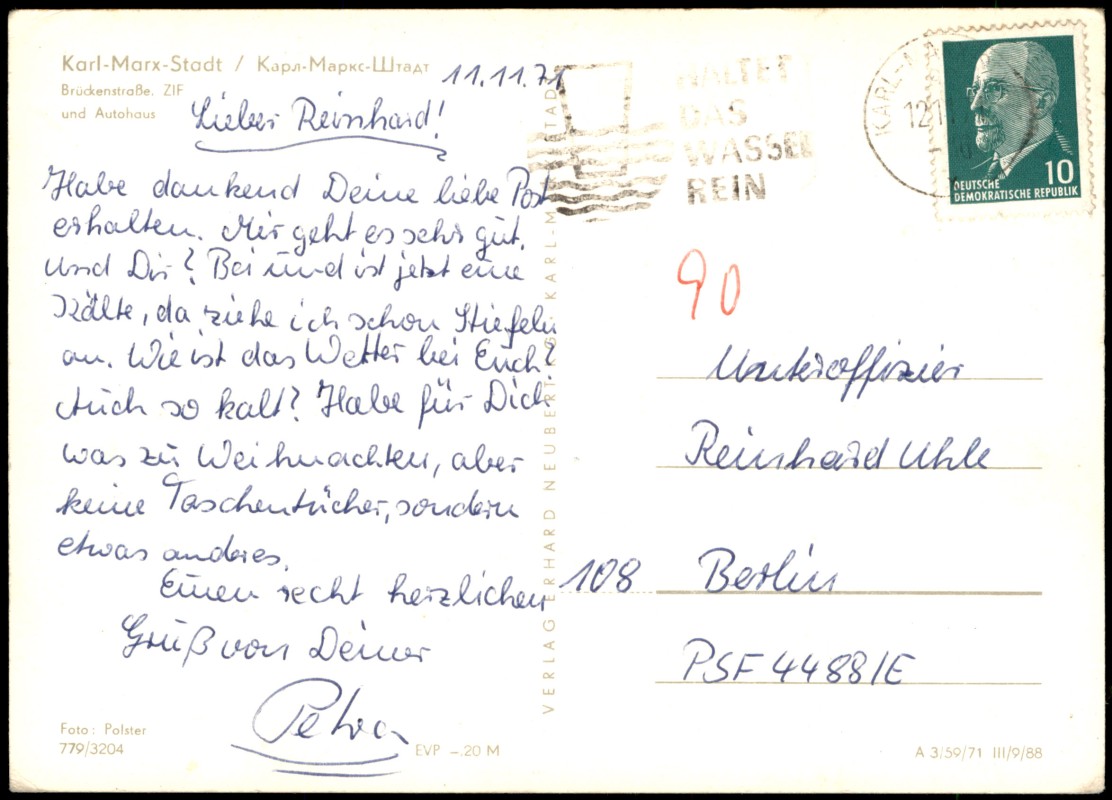 Karl-Marx-Stadt / Карл-Маркс-Штадт
Brückenstraße. ZIF
und Autohaus
11.11.71
Lieber Reinhard!
Habe dankend Deine liebe Post
erhalten. Mir geht es sehr gut.
Und Dir? Bei und ist jetzt eine
Kälte, da ziehe ich schon Stiefeln
an. Wie ist das Wetter bei Euch?
Auch so kalt? Habe für Dich
was zu Weihnachten, aber
keine Taschentücher, sondern
etwas anderes.
Einen recht herzlichen
Gruß von Deiner
Petra
Foto: Polster
779/3204
EVP –.20 M
VERLAG ERHARD NEUBERT KARL-M STADT
HALTET
DAS
WASSER
REIN
KARL-M
12.1
10
DEUTSCHE
DEMOKRATISCHE REPUBLIK
90
Unteroffizier
Reinhard Uhle
108 Berlin
PSF 4488/E
A 3/59/71 III/9/88